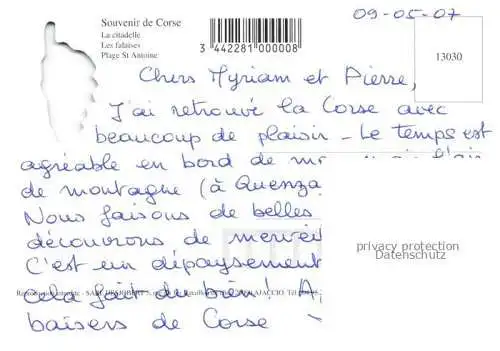 Souvenir de Corse
La citadelle
Les falaises
Plage St Antoine
3 442281 000008
09-05-07
13030
Chers Myriam et Pierre,
J'ai retrouvé la Corse avec
beaucoup de plaisir - Le temps est
agréable en bord de
de montagne (à Quenza
Nous faisons de belles
découvrons de merveil
C'est un dépaysement
cela fait du bien! A
baisers de Corse
privacy protection
Datenschutz